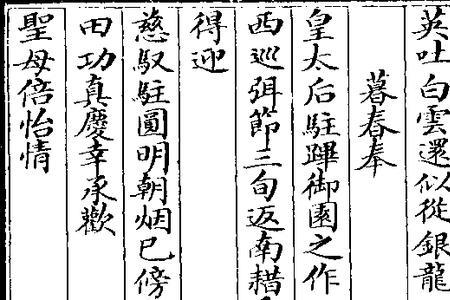 英吐白雲還似從銀龍
暮春奉
皇太后駐蹕御園之作
西巡弭節三旬返南耤
得迎
慈馭駐圓明朝烟已傍
田功真慶幸承歡
聖母倍怡情